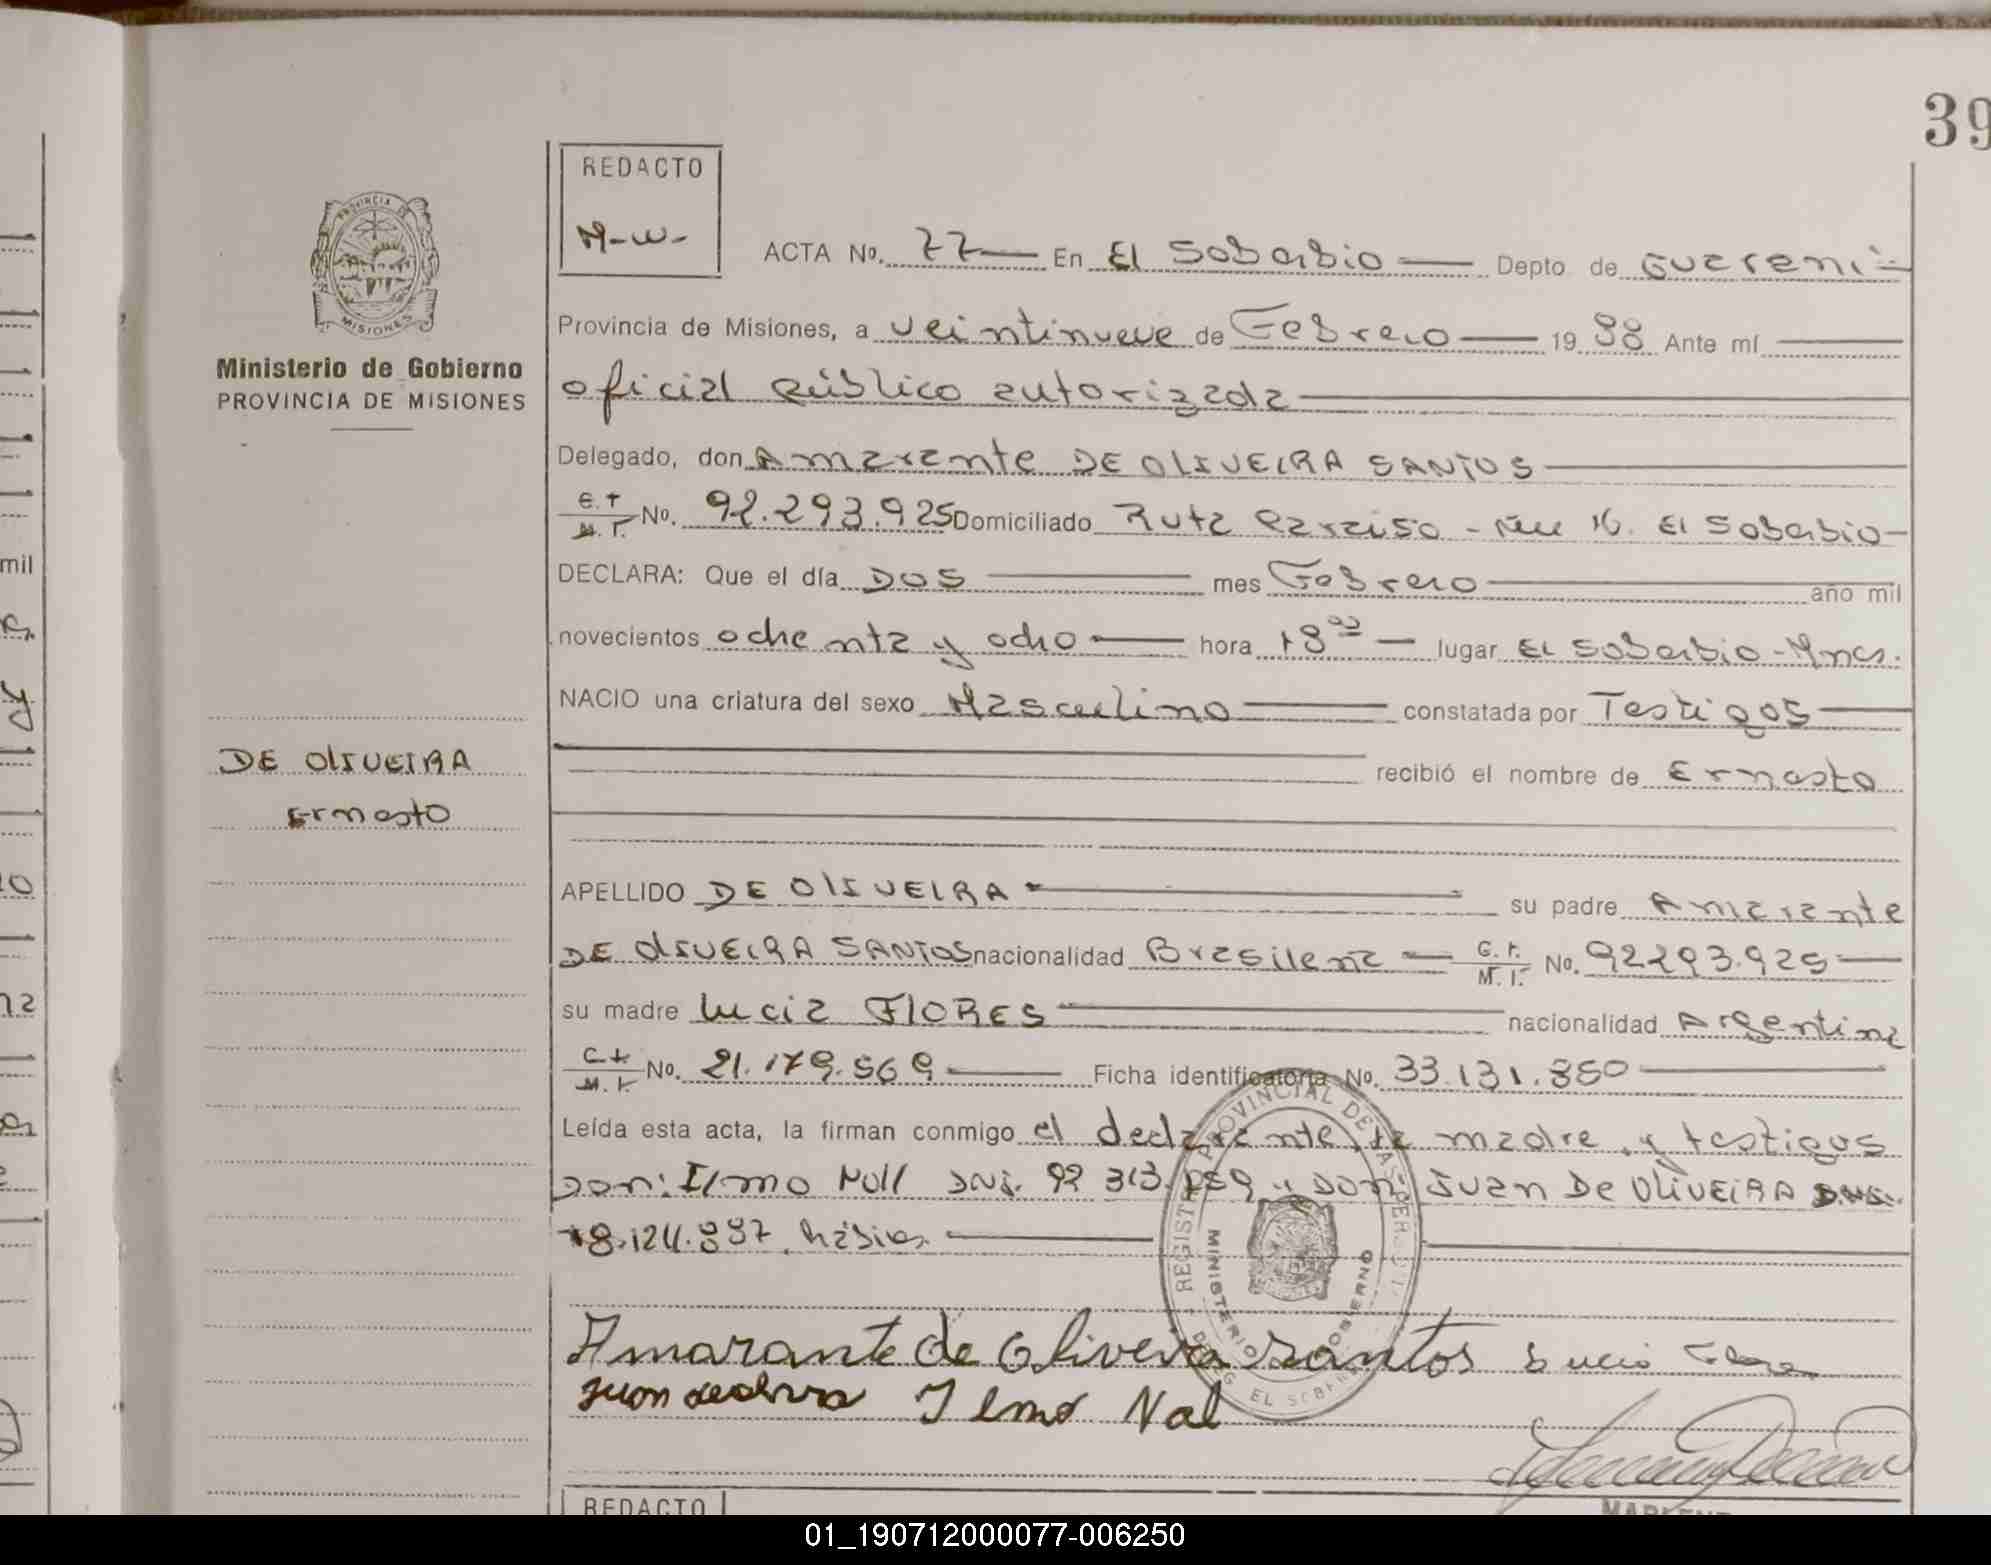 39
REDACTO
M-W-
ACTA No. 77 En El Soberbio Depto de Guarani
PROVINCIA DE
MISIONES
Ministerio de Gobierno
PROVINCIA DE MISIONES
Provincia de Misiones, a veintinueve de Febrero 1988 Ante mí
oficial público autorizada
Delegado, don Amarante DE OLIVEIRA SANTOS
C.I. M.I. No. 92.293.925 Domiciliado Ruta Paraiso - Km 16. El Soberbio
DECLARA: Que el día DOS mes Febrero año mil
novecientos ochenta y ocho hora 18 00 lugar El Soberbio - Mnes.
NACIO una criatura del sexo Masculino constatada por Testigos
recibió el nombre de Ernesto
DE OLIVEIRA
Ernesto
APELLIDO DE OLIVEIRA su padre Amarante
DE OLIVEIRA SANTOS nacionalidad Brasilena C.I. M.I. No. 92293.925
su madre Lucia FLORES nacionalidad Argentina
C.I. M.I. No. 21.179.569 Ficha identificatoria No. 33.131.850
Leída esta acta, la firman conmigo el declarante, la madre y testigos
Don: Ilmo Noll DNI. 92 313.259 y DON: Juan De OLIVEIRA D.N.I.
18.124.997 hábiles
REGISTRO PROVINCIAL DE LAS PERSONAS
MINISTERIO GOBIERNO
DELEG EL SOBERBIO
Amarante de Oliveira Santos Lucia
Juan Ilmo Nol
REDACTO
01_190712000077-006250